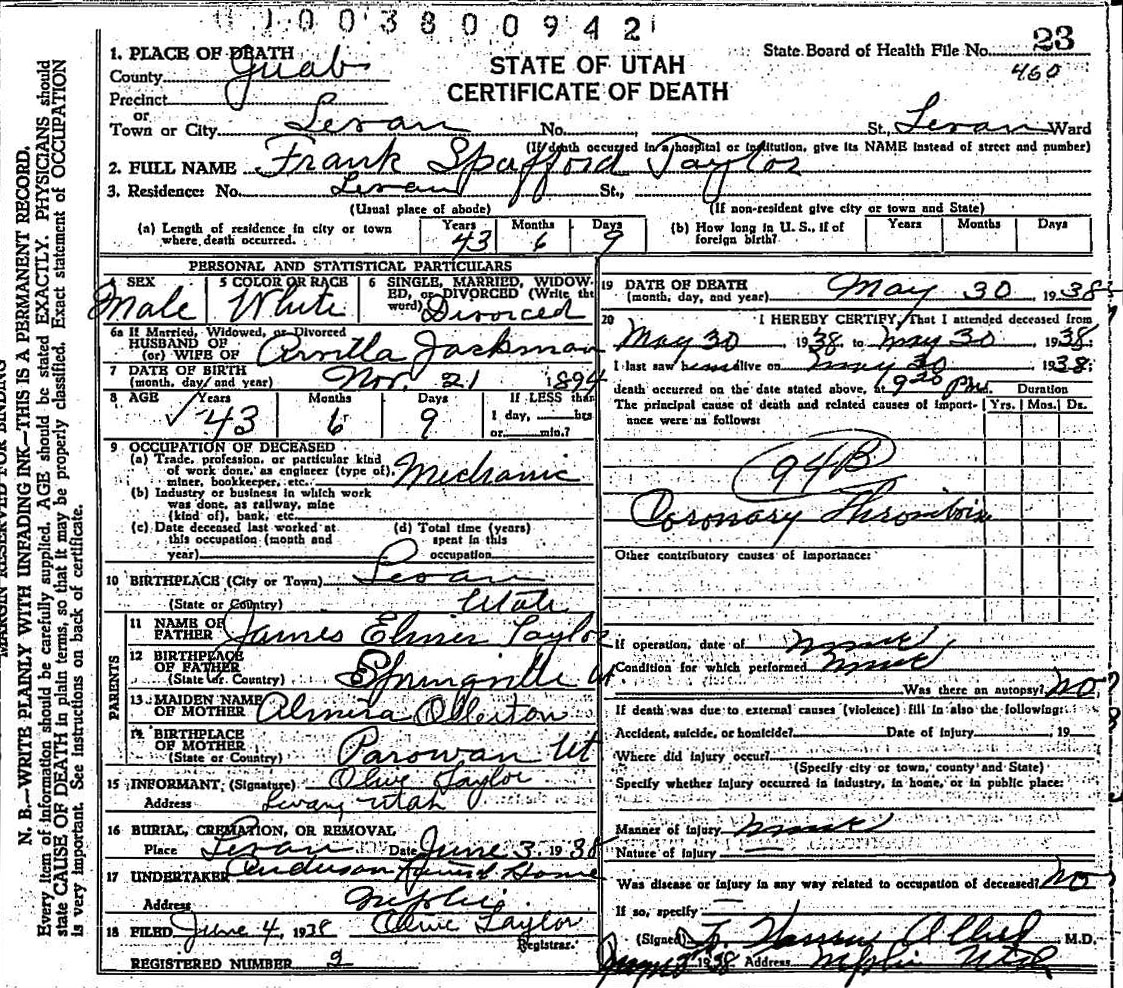 1003800942
1. PLACE OF DEATH
STATE OF UTAH
CERTIFICATE OF DEATH
State Board of Health File No. 23
460
County Juab
Precinct
or
Town or City Levan No. St., Levan Ward
(If death occurred in a hospital or institution, give its NAME instead of street and number)
2. FULL NAME Frank Spafford Taylor
3. Residence: No. Levan St.,
(Usual place of abode) (If non-resident give city or town and State)
(a) Length of residence in city or town where death occurred. Years 43 Months 6 Days 9
(b) How long in U. S., if of foreign birth? Years Months Days
PERSONAL AND STATISTICAL PARTICULARS
4 SEX Male
5 COLOR OR RACE White
6 SINGLE, MARRIED, WIDOWED, or DIVORCED (Write the word) Divorced
6a If Married, Widowed, or Divorced
HUSBAND OF
(or) WIFE OF Arvilla Jackman
7 DATE OF BIRTH
(month, day, and year) Nov. 21 1894
8 AGE Years 43 Months 6 Days 9 If LESS than
1 day, hrs
or min.?
9 OCCUPATION OF DECEASED
(a) Trade, profession, or particular kind
of work done, as engineer (type of),
miner, bookkeeper, etc. Mechanic
(b) Industry or business in which work
was done, as railway, mine
(kind of), bank, etc.
(c) Date deceased last worked at
this occupation (month and
year)
(d) Total time (years)
spent in this
occupation
10 BIRTHPLACE (City or Town) Levan
(State or Country) Utah
PARENTS
11 NAME OF
FATHER James Elmer Taylor
12 BIRTHPLACE
OF FATHER
(State or Country) Springville Ut
13 MAIDEN NAME
OF MOTHER Almira Ollerton
14 BIRTHPLACE
OF MOTHER
(State or Country) Parowan Ut
15 INFORMANT: (Signature) Olive Taylor
Address Levan, Utah
16 BURIAL, CREMATION, OR REMOVAL
Place Levan Date June 3, 1938
17 UNDERTAKER Anderson Funeral Home
Address Nephi
18 FILED June 4, 1938 Olive Taylor
Registrar.
REGISTERED NUMBER 2
19 DATE OF DEATH
(month, day, and year) May 30 1938
20 I HEREBY CERTIFY, That I attended deceased from
May 30 1938, to May 30 1938;
I last saw him alive on May 30 1938;
death occurred on the date stated above, at 9 20 P.m. Duration
The principal cause of death and related causes of importance were as follows: Yrs. Mos. Ds.
94B
Coronary Thrombosis
Other contributory causes of importance:
If operation, date of
Condition for which performed
Was there an autopsy? No
If death was due to external causes (violence) fill in also the following:
Accident, suicide, or homicide? Date of Injury 19
Where did injury occur?
(Specify city or town, county and State)
Specify whether injury occurred in industry, in home, or in public place:
Manner of injury
Nature of injury
Was disease or injury in any way related to occupation of deceased? No
If so, specify
(Signed) M.D.
1938 Address Nephi Utah
MARGIN RESERVED FOR BINDING
N. B.—WRITE PLAINLY WITH UNFADING INK—THIS IS A PERMANENT RECORD.
Every item of information should be carefully supplied. AGE should be stated EXACTLY. PHYSICIANS should
state CAUSE OF DEATH in plain terms, so that it may be properly classified. Exact statement of OCCUPATION
is very important. See instructions on back of certificate.